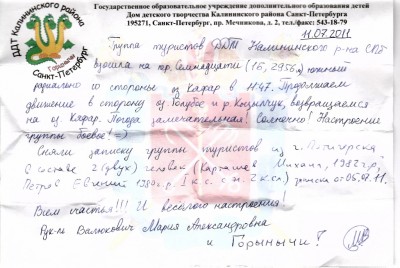 Государственное образовательное учреждение дополнительного образования детей
Дом детского творчества Калининского района Санкт-Петербурга
195271, Санкт-Петербург, пр. Мечникова, д. 2, тел./факс: 543-18-79
ДДТ Калининского района
Горыныч
Санкт-Петербург
11.07.2011
Группа туристов ДДТ Калининского р-на СПб
взошла на пр. Семнадцати (1Б, 2956м) южный
радиально со стороны оз. Кафар в 11:47. Продолжаем
движение в сторону оз. Голубое и р. возвращаемся
на оз Кафар. Погода замечательная! Солнечно! Настроение
группы боевое! =)
Сняли записку группы туристов из г. Пятигорска
в составе 2 (двух) человек (Карташев Михаил, 1982 г.р.,
Петров Евгений 1989г.р. 1к.с. и 2к.с.) записка от 11.
Всем счастья!!! И веселого настроения!
Рук-ль Валюкович Мария Александровна
и Горынычи!